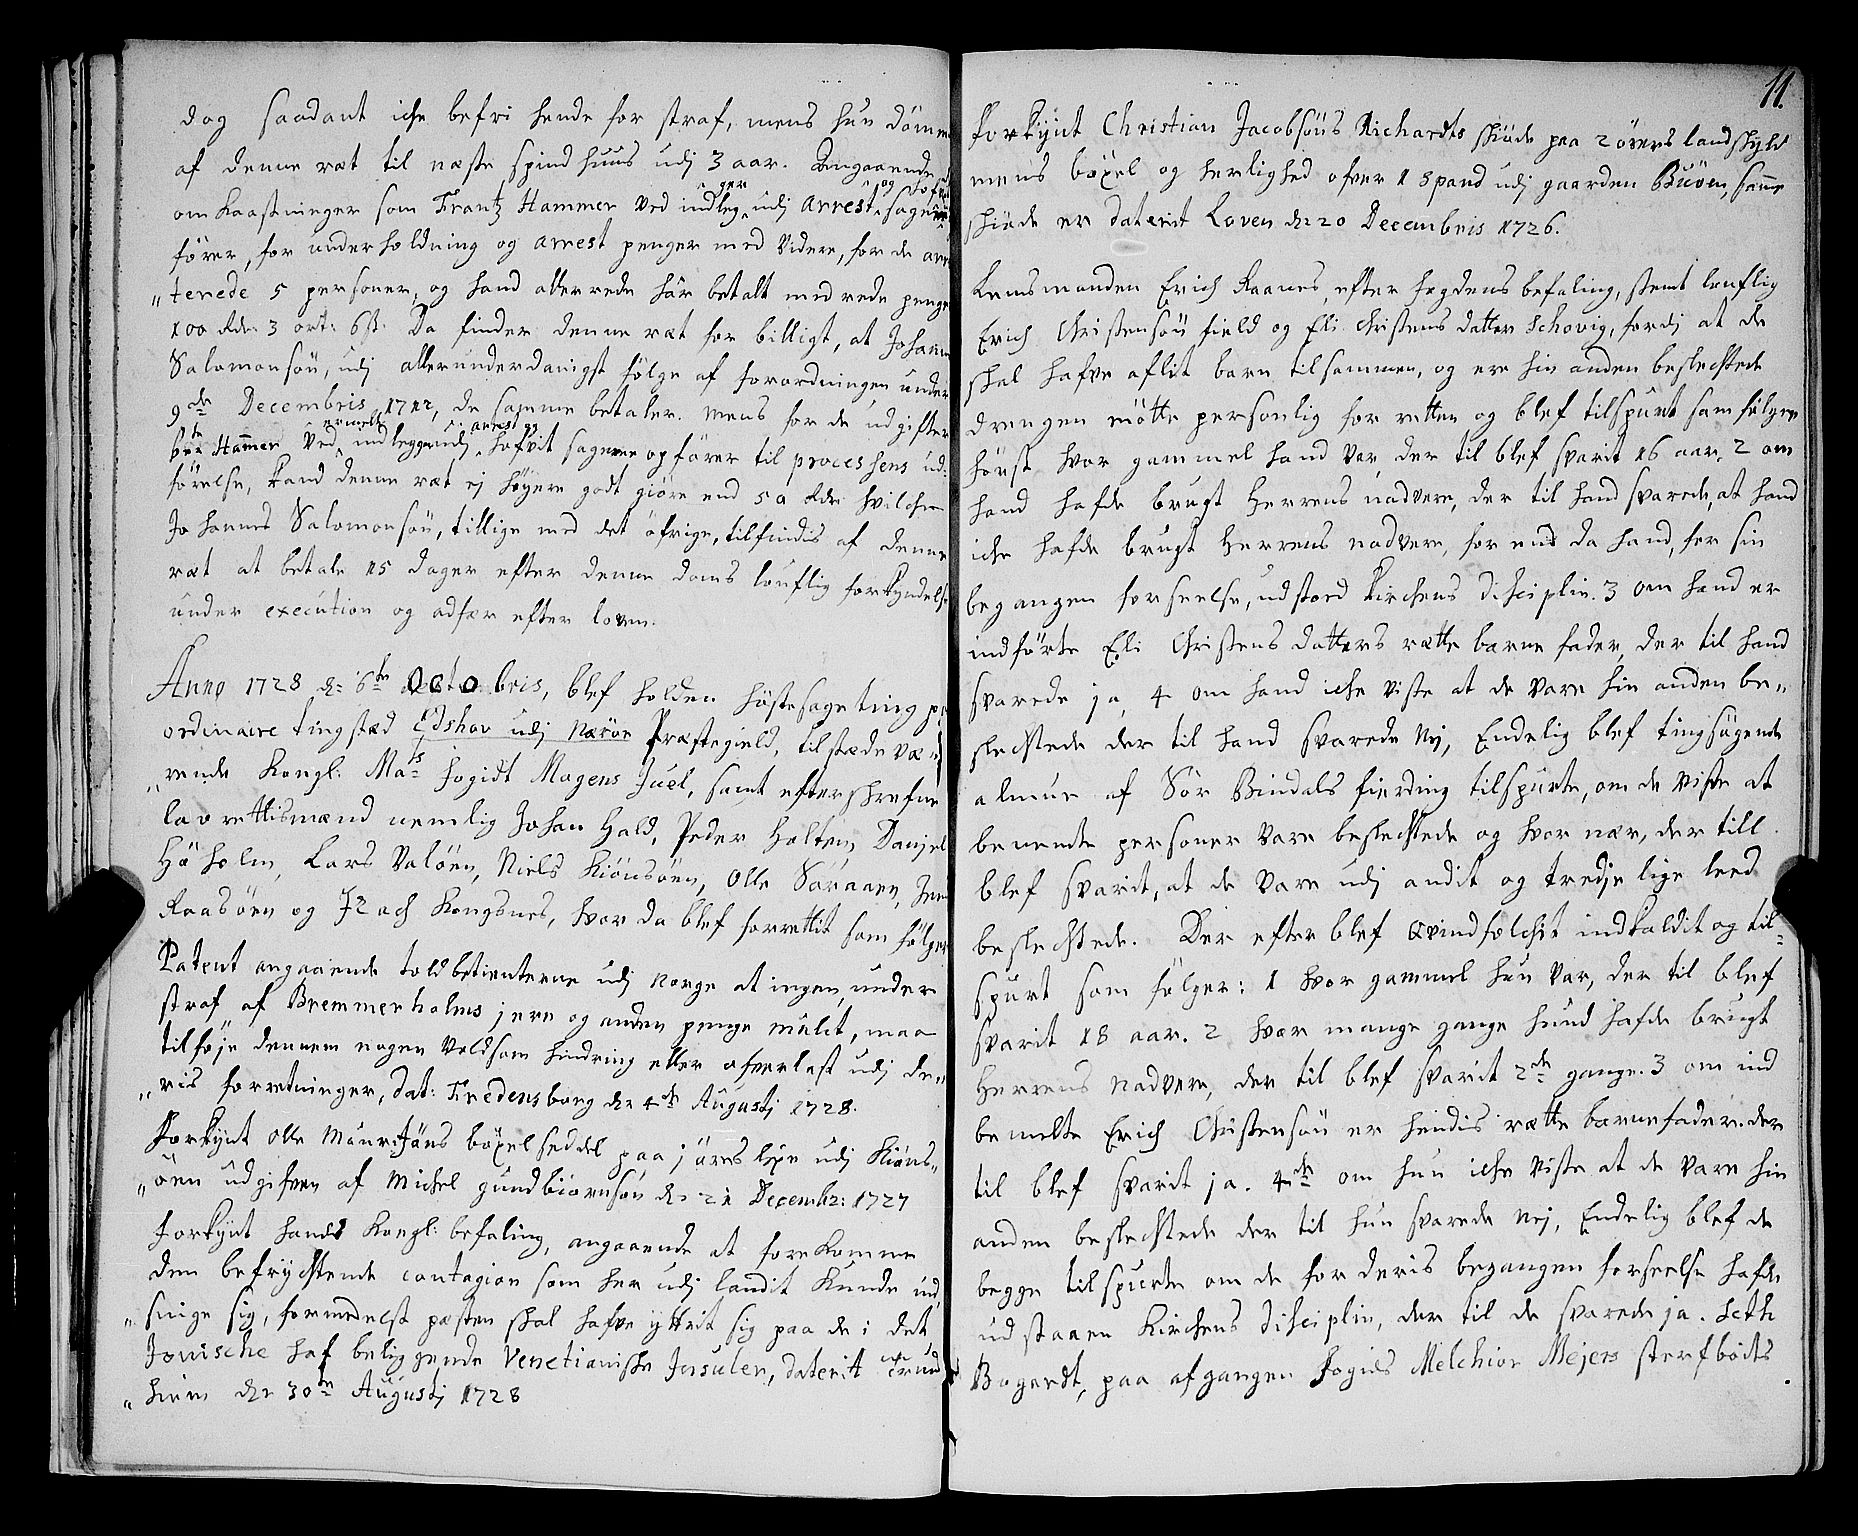 dog saadant iche befri hende for straf, mens hun dömmes
af denne ræt til næste spindhuus udj 3 aar. Angaaende
om kaastninger som Frantz Hammer ved indleg udj arrest sagens
förer, for underholdning og arrest penger med videre, for de arre
„terede 5 personer, og hand allerrede har betalt med rede penge
100 Rdr 3 ort: 6 s. Da finder denne ræt for billigt, at Johann
Salomonsön, udj allerunderdanigst fölge af forordningen under
9de Decembris 1712, de samme betaler. mens for de udgifter
Hammer ved indleg udj sagerne opförer til processens ud:
förelse, kand denne ræt ej höyere godt giöre end 50 Rdr hvilche
Johannes Salomonsön, tillige med det öfrige, tilfindis af denne
ræt at betale 15 dager efter denne doms louflig forkyndelse
under execution og adfær efter loven.
Anno 1728 d: 6te Octobris, blef holden höstesageting paa
ordinaire tingstæd Edshov udj Næröe Præstegield, tilstæde væ„
„rende Kongl: Mats fogidt Mogens Juel, samt efterskrefne
lavrettismænd nemlig Johan Hald, Peder Holten, Danjel
Höholm, Lars Valöen, Niels Kiönsöen, Olle Söraaen, Jens
Raasöen og Izach Kongsnes, hvor da blef forrettit som fölger
Patent angaaende toldbetienterne udj norge at ingen under
straf af Bremmerholms jern og anden penge mulct, maa
tilföje dennem nogen voldsom hindring eller ofverlast udj de„
„ris forretninger, dat: Fredensborg d: 4de Augustj 1728.
Forkynt Olle böxelseddel paa j öres leye udj Kiöns„
„öen udgifven af Michel Gundbiörnsön d: 21 Decembr: 1727
Forkynt hands Kongl: befaling, angaaende at forekomme
den befrychtende contagion som her udj landit kunde ind
„snige sig, formedelst pæsten skal hafve yttrit sig paa de i det
Jonische haf beliggende Venetianiske Insuler, daterit Trund
„hiem d: 30te Augustj 1728
11.
Forkynt Christian Jacobsöns Richardts skiöde paa 2 örers landskyld
mens böxel og herlighed ofver 1 spand udj gaarden Buöen, samme
skiöde er daterit Loven d: 20 Decembris 1726.
Lensmanden Erich Raanes, efter fogdens befaling, stemt louflig
Erich Christensön field og Eli Christens datter Schovig, fordj at de
skal hafve aflit barn tilsammen, og ere hin anden beslechtede
drengen mötte personlig for retten og blef tilspurt som fölger
först hvor gammel hand var, der til blef svarit 16 aar, 2 om
hand hafde brugt Herrens nadvere, der til hand svarede, at hand
iche hafde brugt Herrens nadvere, for end da hand, for sin
begangen forseelse, udstoed kirchens disciplin. 3 om hand er
indförte Eli Christens datters rætte barne fader, der til hand
svarede ja, 4 om hand iche viste at de vare hin anden be„
slechtede der til hand svarede Nej, Endelig blef tingsögende
almue af Sör Bindals fierding tilspurte, om de viste at
benente personer vare beslechtede og hvor nær, der till
blef svarit, at de vare udj andit og tredje lige leed
beslechtede. Der efter blef qvindfolchit indkaldit og til„
spurt som fölger: 1 hvor gammel hun var, der til blef
svarit 18 aar. 2 hvor mange gange hund hafde brugt
Herrens nadvere, der til blef svarit 2de gange. 3 om ind
bemelte Erich Christensön er hendis rætte barnefader. der
til blef svarit ja. 4de om hun iche viste at de vare hin
anden beslechtede der til hun svarede Nej, Endelig blef de
begge tilspurte om de for deris begangen forseelse hafde
udstaaen Kirchens disciplin, der til de svarede ja. Seth
Bogardt, paa afgangen fogids Melchior Mejers sterfboids